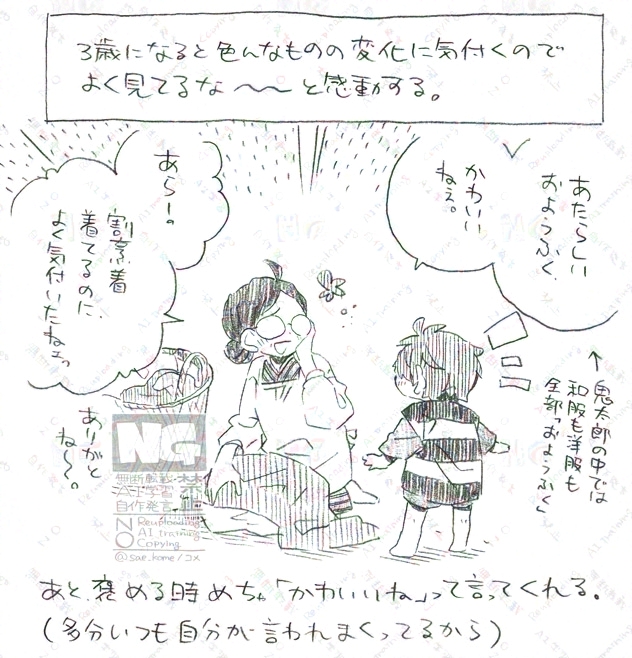 3歳になると色んなものの変化に気付くので
よく見てるな〜〜と感動する。
あたらしい
おようふく、
かわいい
ねぇ。
↑鬼太郎の中では
和服も洋服も
全部「おようふく」
あらー。
割烹着
着てるのに、
よく気付いたねェっ
ありがと
ね〜〜。
NG
無断転載・
AI学習
自作発言
禁止
NO
Reuploading
AI training
Copying
@sae_home/コメ
あと、褒める時めちゃ「かわいいね」って言ってくれる。
(多分いつも自分が言われまくってるから)